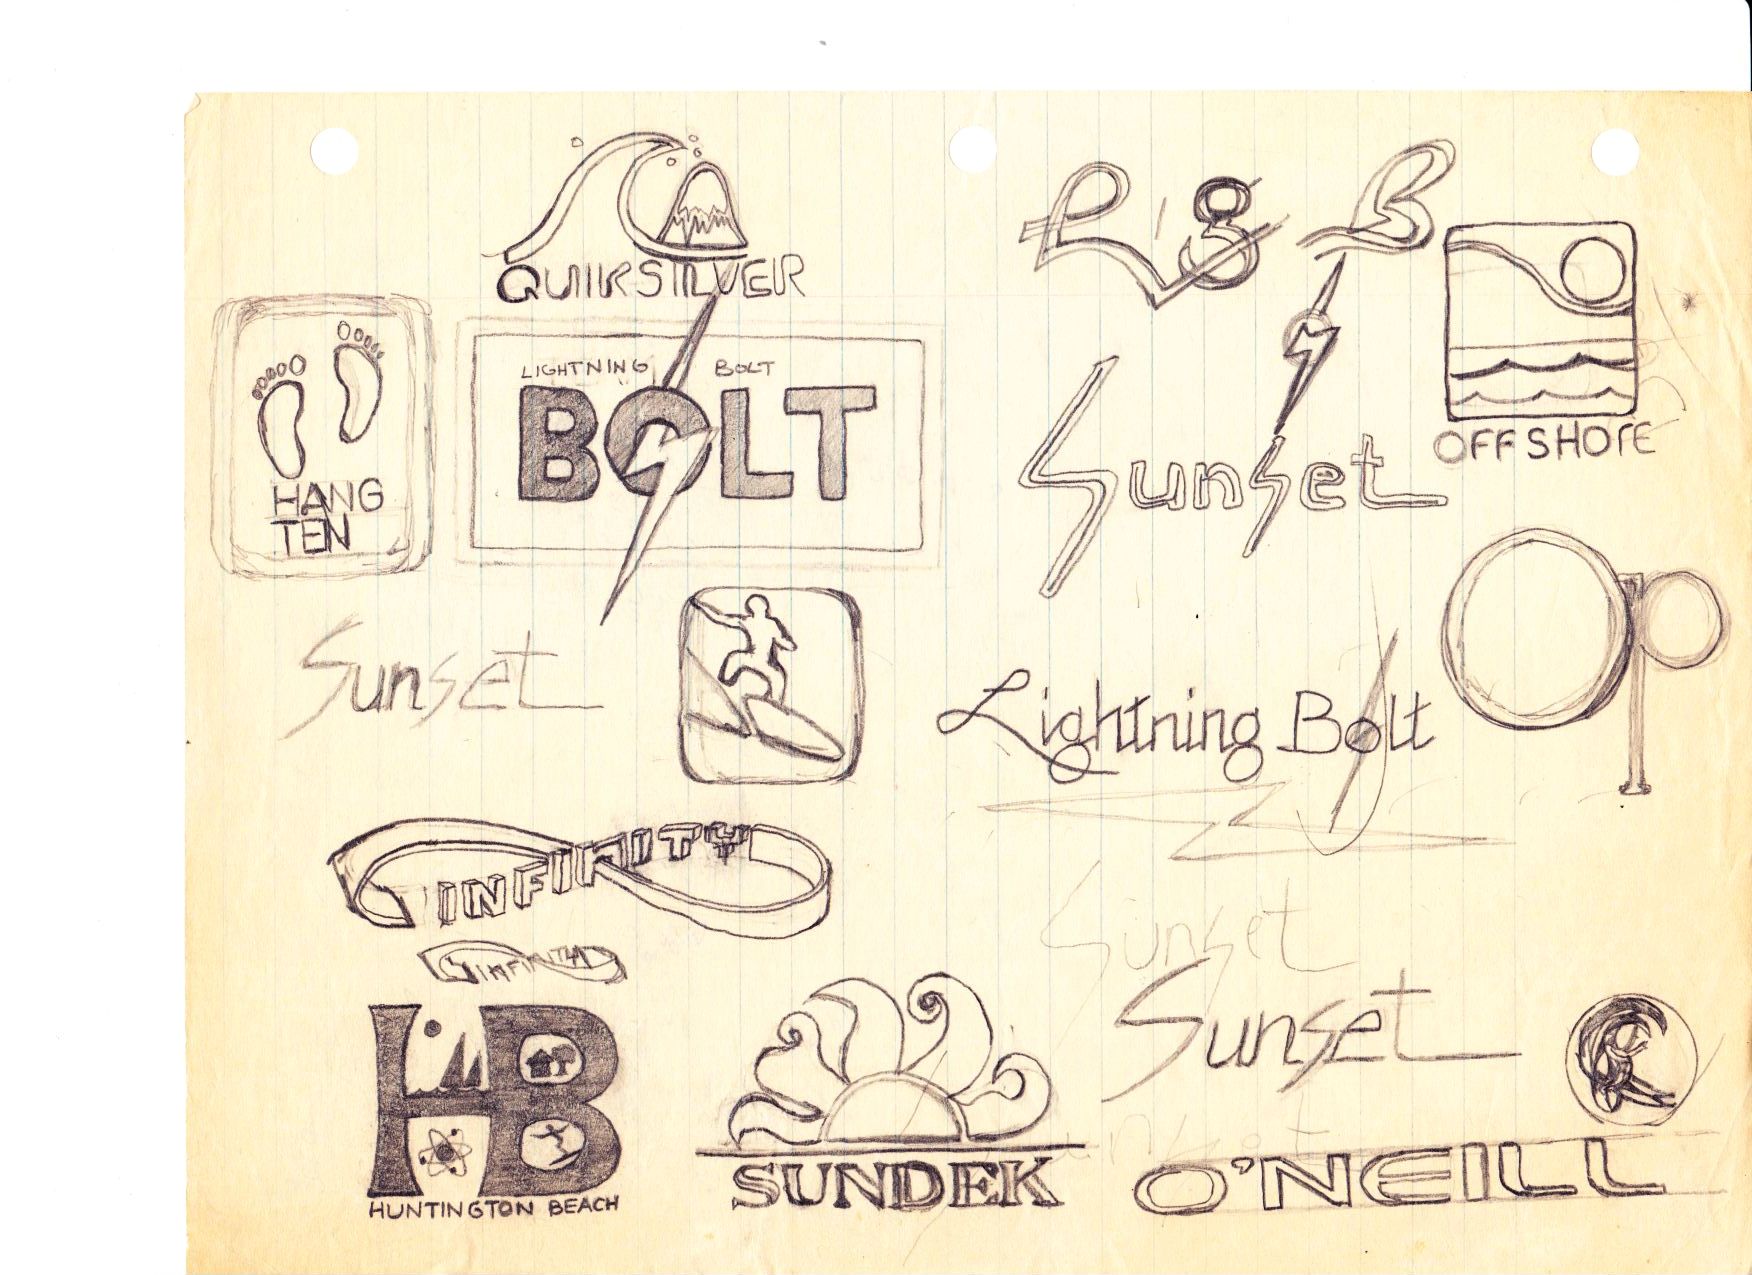 QUIKSILVER
L'g B
HANG
TEN
LIGHTNING BOLT
BOLT
OFFSHORE
Sunset
Sunset
Lightning Bolt
INFINITY
INFINITY
Sunset
Sunset
HUNTINGTON BEACH
HB
SUNDEK
O'NEILL